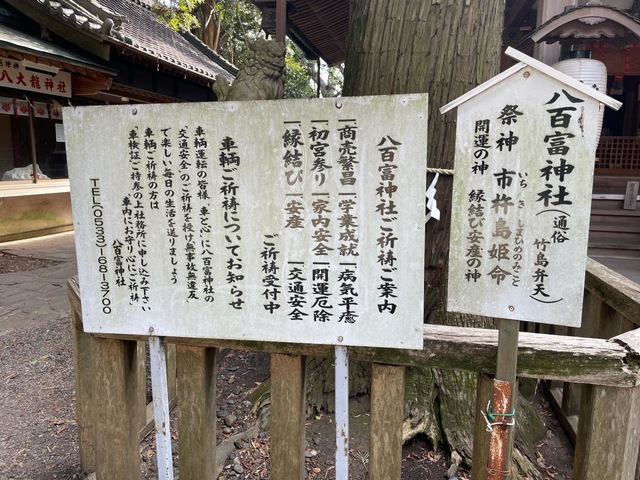 八百富神社(通俗 竹島弁天)
祭神 市杵島姫命
いちきしまひめのみこと
開運の神 縁結び安産の神
八百富神社ご祈祷ご案内
一商売繁昌 一学業成就 一病気平癒
一初宮参り 一家内安全 一開運厄除
一縁結び 一安産 一交通安全
ご祈祷受付中
車輌ご祈祷についてお知らせ
車輌運転の皆様、車と心に八百富神社の
「交通安全」のご祈祷を授け無事故無違反、
で楽しい毎日の生活を送りましょう
車輌ご祈祷の方は
車検証ご持参の上社務所に申し込み下さい
「車内にお守り心にご祈祷」
八百富神社
TEL(0533)-68-3700
八大龍神社